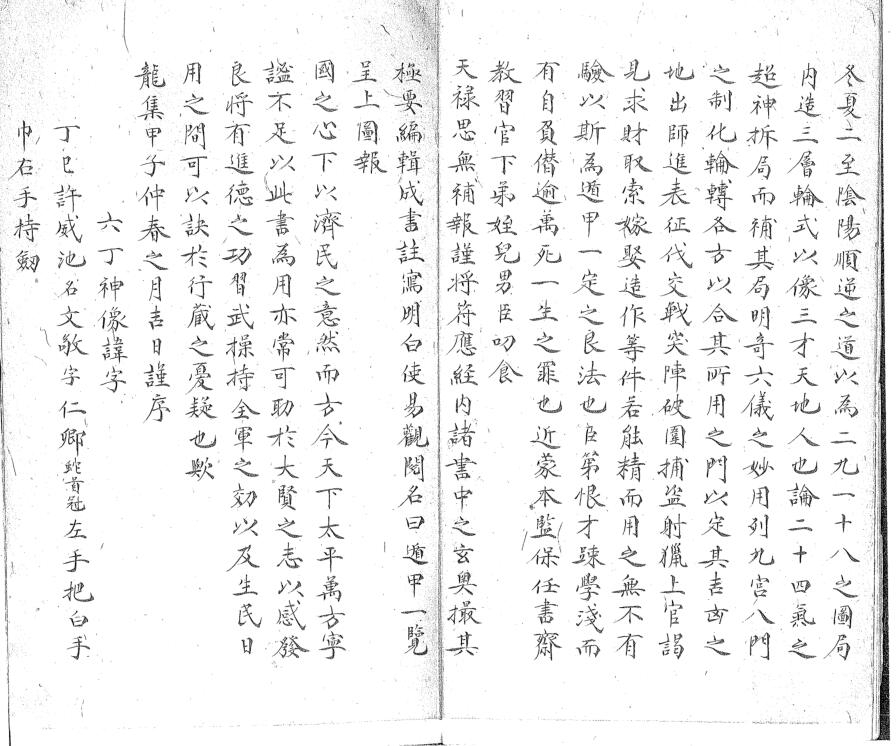 冬夏二至陰陽順逆之道以為二九一十八之圖局
内造三層輪式以像三才天地人也論二十四氣之
超神拆局而補其局明竒六儀之妙用列九宫八門
之制化輪轉各方以合其所用之門以定其吉凶之
地出師進表征伐交戰突陣破圍捕盗射獵上官謁
見求財取索嫁娶造作等件若能精而用之無不有
驗以斯為遁甲一定之良法也臣第恨才踈學淺而
有自負僭逾萬死一生之罪也近蒙本監保任書齋
教習官下弟姪兒男臣叨食
天禄思無補報謹将符應経内諸書中之玄奥撮其
極要編輯成書註寫明白使易觀閲名曰遁甲一覽
呈上圖報
國之心下以濟民之意然而方今天下太平萬方寧
謐不足以此書為用亦常可助於大賢之志以感發
良将有進德之功習武操持全軍之効以及生民日
用之間可以訣於行蔵之憂疑也歟
龍集甲子仲春之月吉日謹序
六丁神像諱字
丁巳許咸池名文敬字仁卿蛇首冠左手把白手
巾右手持劒